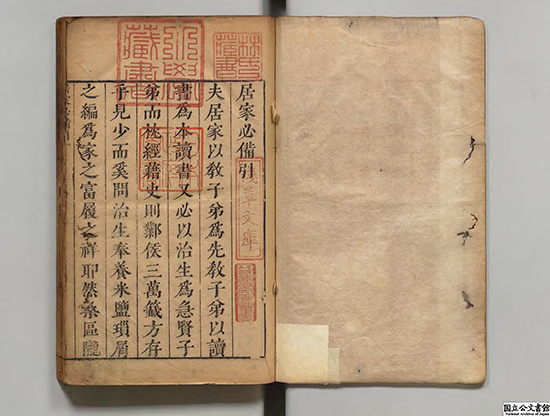 居家必備引
夫居家以教子弟爲先教子弟以讀
書爲本讀書又必以治生爲急賢子
弟而枕經藉史則鄴侯三萬籤方存
乎見少而奚問治生奉養米鹽瑣屑
之編爲家之富履之祥耶然桑區隴
林氏
藏書
淺草文庫
国立公文書館
National Archives of Japan